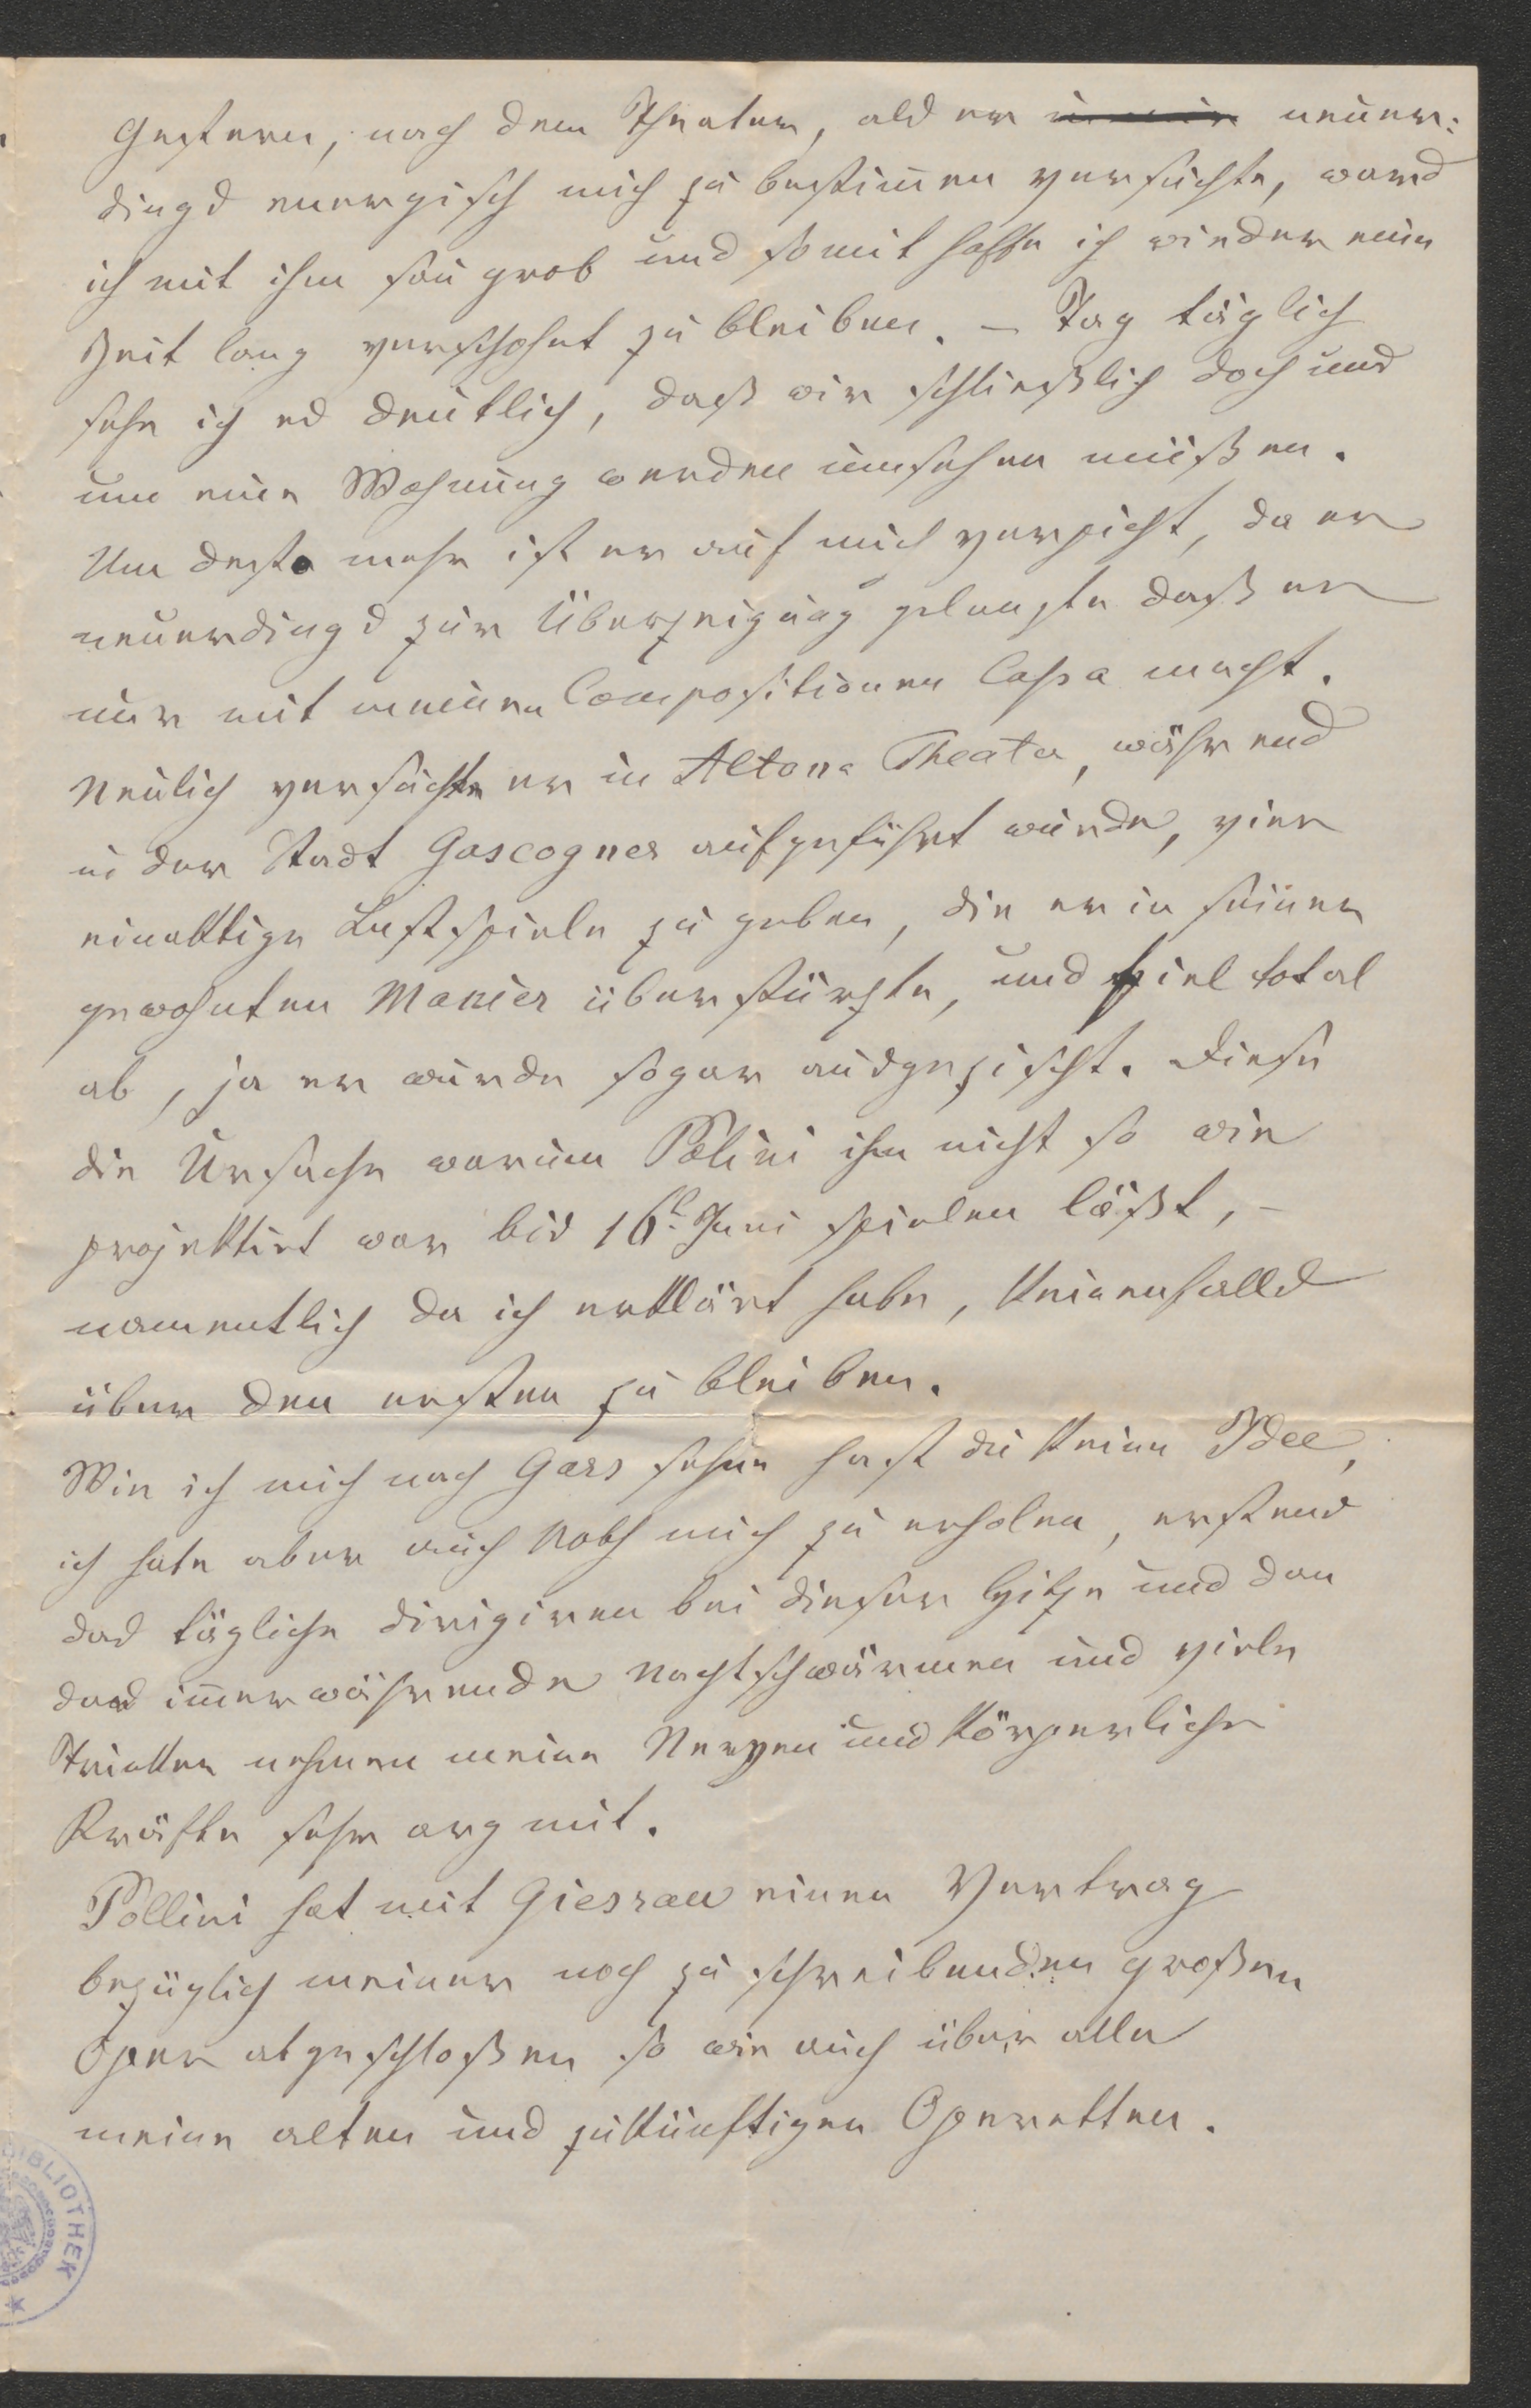 Gestern, nach dem Theater, als er neuer:
dings energisch mich zu bestimmen versuchte, ward
ich mit ihm sau grob und somit hoffe ich wieder eine
Zeit lang verschohnt zu bleiben. – Tag täglich
sehe ich es deutlich, daß wir schließlich doch uns
um eine Wohnung werden umsehen müßen.
Um desto mehr ist er auf mich verpicht, da er
neuerdings zur Überzeigung gelangte daß er
nur mit meinen Compositionen Cassa macht.
Neulich versuchte er in Altona Theater, während
in der Stadt Gascogner aufgeführt wurde, vier
einaktige Lustspiele zu geben, die er in seiner
gewohnten Manier überstürzte, und fiel total
ab, ja er wurde sogar ausgezischt. Diese
die Ursache warum Polini ihn nicht so wie
projektirt war bis 16t Juni spielen läßt, –
namentlich da ich erklärt habe, keinenfalls
über den ersten zu bleiben.
Wie ich mich nach Gars sehne hast du keine Idee,
ich habe aber auch Noth mich zu erholen, erstens
das tägliche dirigiren bei dieser Hitze und dan
das imerwährende Nachtschwärmen und viele
Trinken nehmen meine Nerven und körperliche
Kräfte sehr arg mit.
Pollini hat mit Giesrau einen Vertrag
bezüglich meiner noch zu schreibenden großen
Oper abgeschloßen so wie auch über alle
meine alten und zukünftigen Operetten.
BIBLIOTHEK